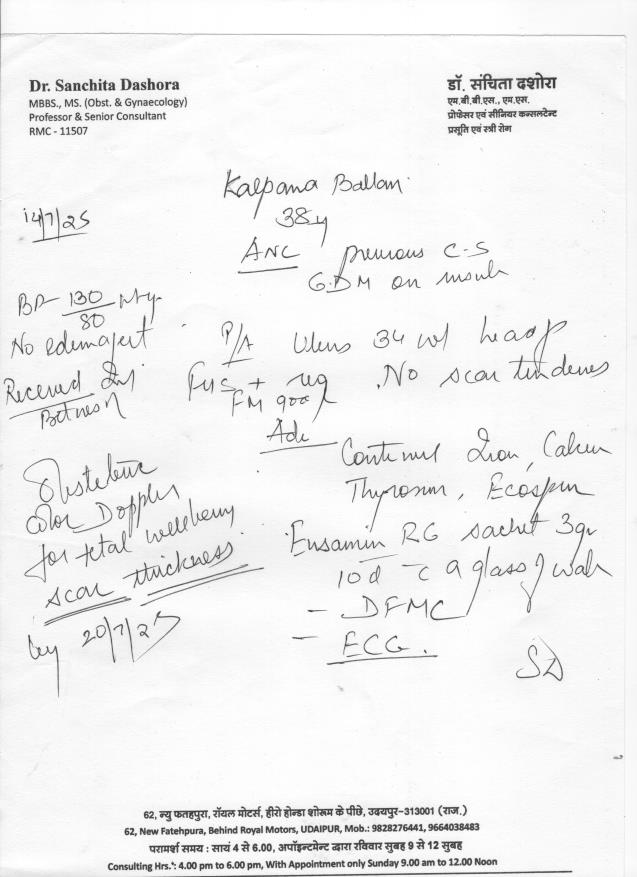 Dr. Sanchita Dashora
MBBS., MS. (Obst. & Gynaecology)
Professor & Senior Consultant
RMC - 11507
डॉ. संचिता दशोरा
एम.बी.बी.एस., एम.एस.
प्रोफेसर एवं सीनियर कन्सलटेन्ट
प्रसूति एवं स्त्री रोग
Kalpana
14/7/25
38y
ANC previous C-S
GDM on
BP- 130/80
No edema feet
Received Inj
P/A 34 w
FHS + reg No scar
FM good
Adv
Iron,
Ecosprin
RG sachet 3gr
10d c a glass of
- DFMC
- ECG.
Obstetric
color Doppler
for fetal wellbeing
scar thickness
by 20/7/25
SD
62, न्यु फतहपुरा, रॉयल मोटर्स, हीरो होन्डा शोरूम के पीछे, उदयपुर-313001 (राज.)
62, New Fatehpura, Behind Royal Motors, UDAIPUR, Mob.: 9828276441, 9664038483
परामर्श समय : सायं 4 से 6.00, अपॉइन्टमेन्ट द्वारा रविवार सुबह 9 से 12 सुबह
Consulting Hrs.: 4.00 pm to 6.00 pm, With Appointment only Sunday 9.00 am to 12.00 Noon